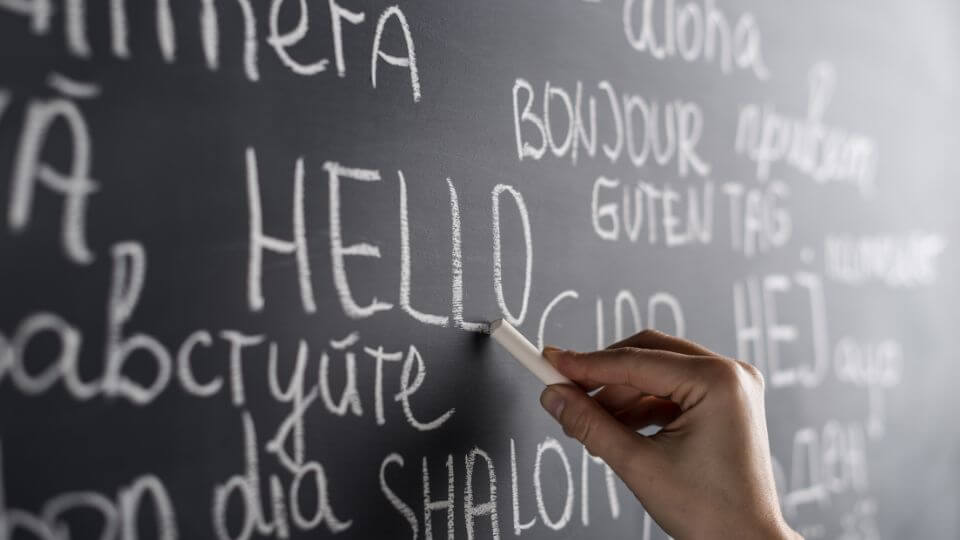 aloha
BONJOUR
привет
HELLO
GUTEN TAG
CIAO
HEJ
авствуйте
bon dia
SHALOM